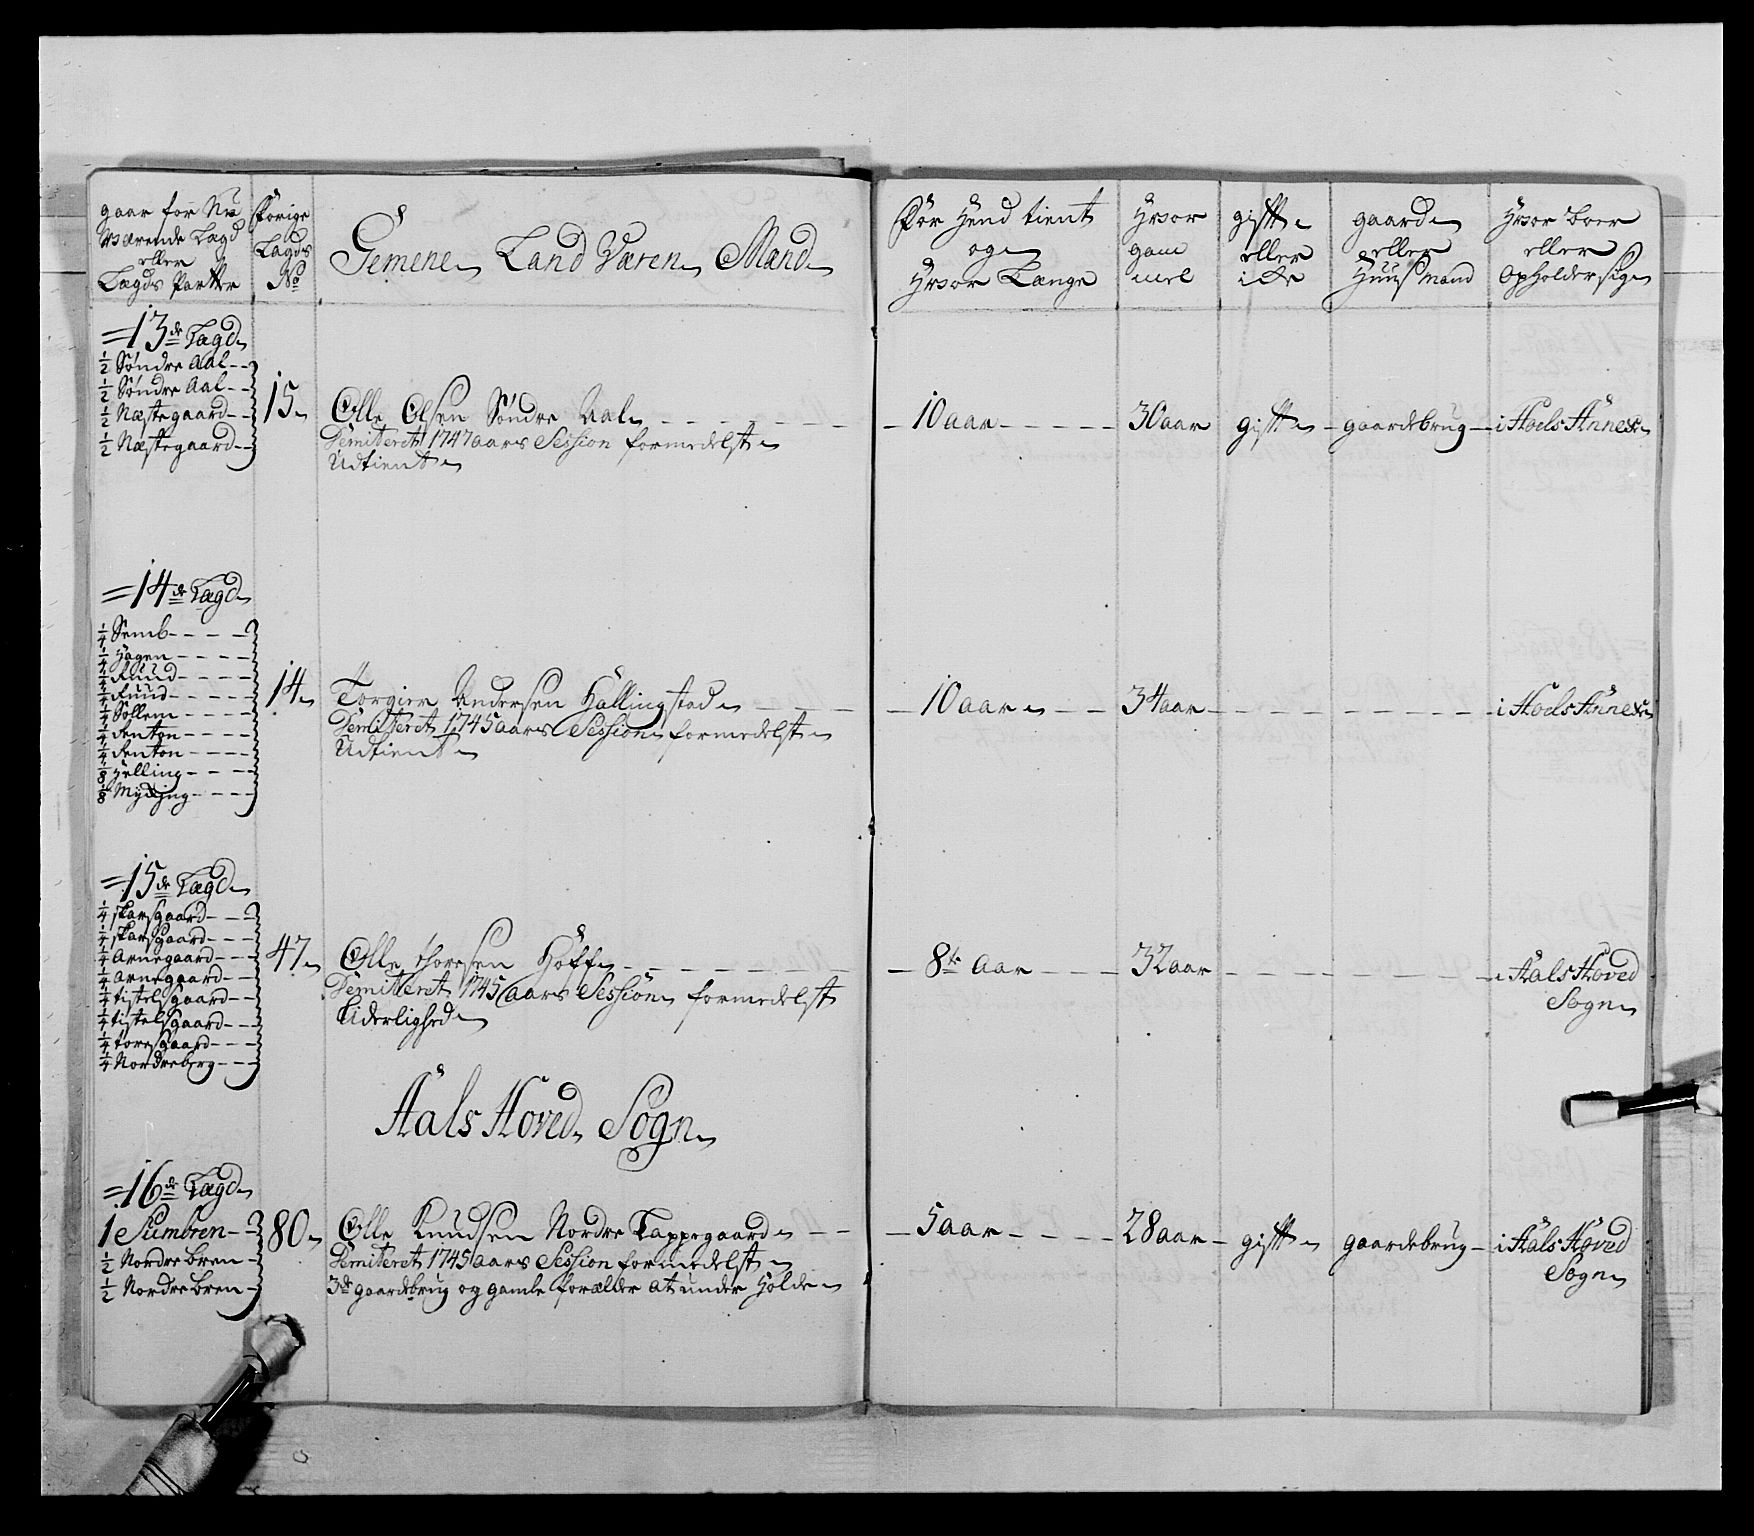 gaar for Nu
værende Lagd
eller
Lægds Partter
Förige
Lagds
No
Gemene Land Væren Mænd
För Hend tient
og
Hvor Længe
Hvor
gam
mel
gifft
eller
icke
gaard
eller
Huus Mand
Hvor boer
eller
opholder sig
=13de Lægd
1/2 Söndre Aal
1/2 Söndre Aal
1/2 Næstegaard
1/2 Næstegaard
15
Olle Olsen Söndre Aal
Demiteret 1747 aars Session formedelst
Udtient
10 aar
30 aar
gifft
gaardebrug
i Hoels Annex
=14de Lægd
1/4 Semb
1/4 Hagen
1/4 Ruud
1/4 Ruud
1/4 Sollem
1/4 Renton
1/4 Renton
1/8 Helling
1/8
14
Torgier Andersen Hallingstad
Demiteret 1745 aars Session formedelst
Udtient
10 aar
34 aar
i Hoels Annex
=15de Lægd
1/4 Skarsgaard
1/4 Skarsgaard
1/4 Arnegaard
1/4 Arnegaard
1/4 tistelsgaard
1/4 tistelsgaard
1/4 toresgaard
1/4 Nordreberg
47
Olle thoresen Höff
Demitteret 1745 aars Session formedelst
Liderlighed
8te aar
32 aar
i Aals Hoved
Sogn
Aals Hoved Sogn
=16de Lægd
1 Sumbren
1/2 Nordre bren
1/2 Nordre bren
80
Olle Knudsen Nordre Kappegaard
Demiteret 1745 aars Session formedelst
3de gaardebrug og gamle forælder at under Holde
5 aar
28 aar
gifft
gaardebrug
i Aals Hoved
Sogn